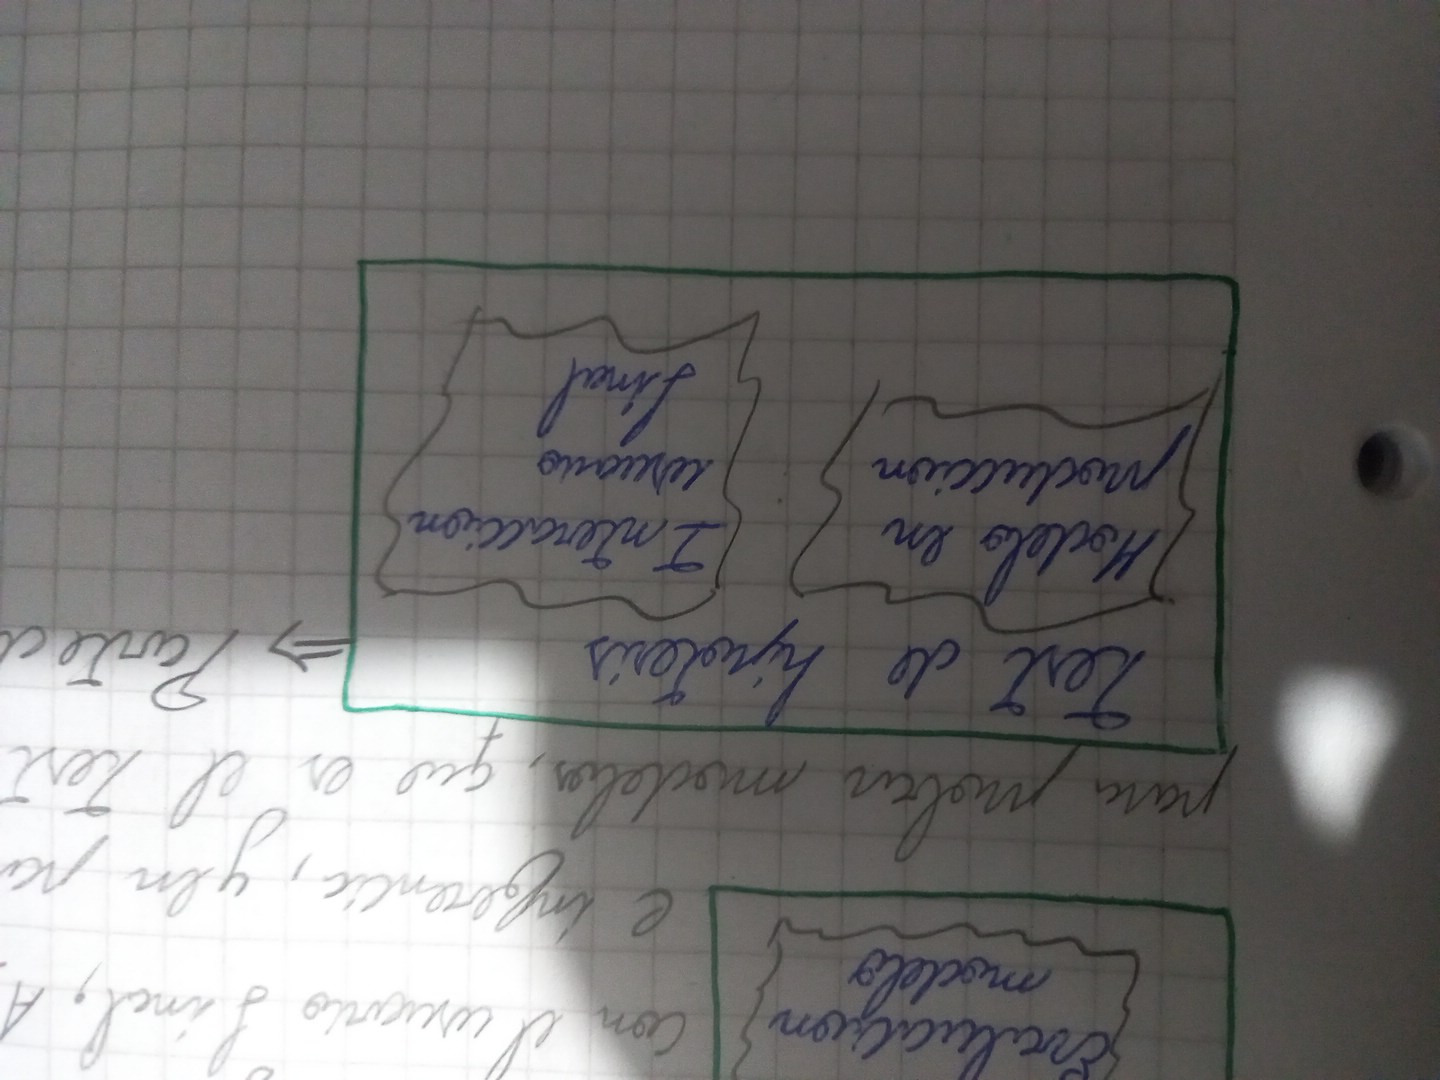 Evaluacion
modelo
con el usuario final, A
e inferencia, y en
para probar modelos, que es el Test
Test de hipotesis
⇒ Parte
Modelo en
produccion
Interaccion
usuario
final